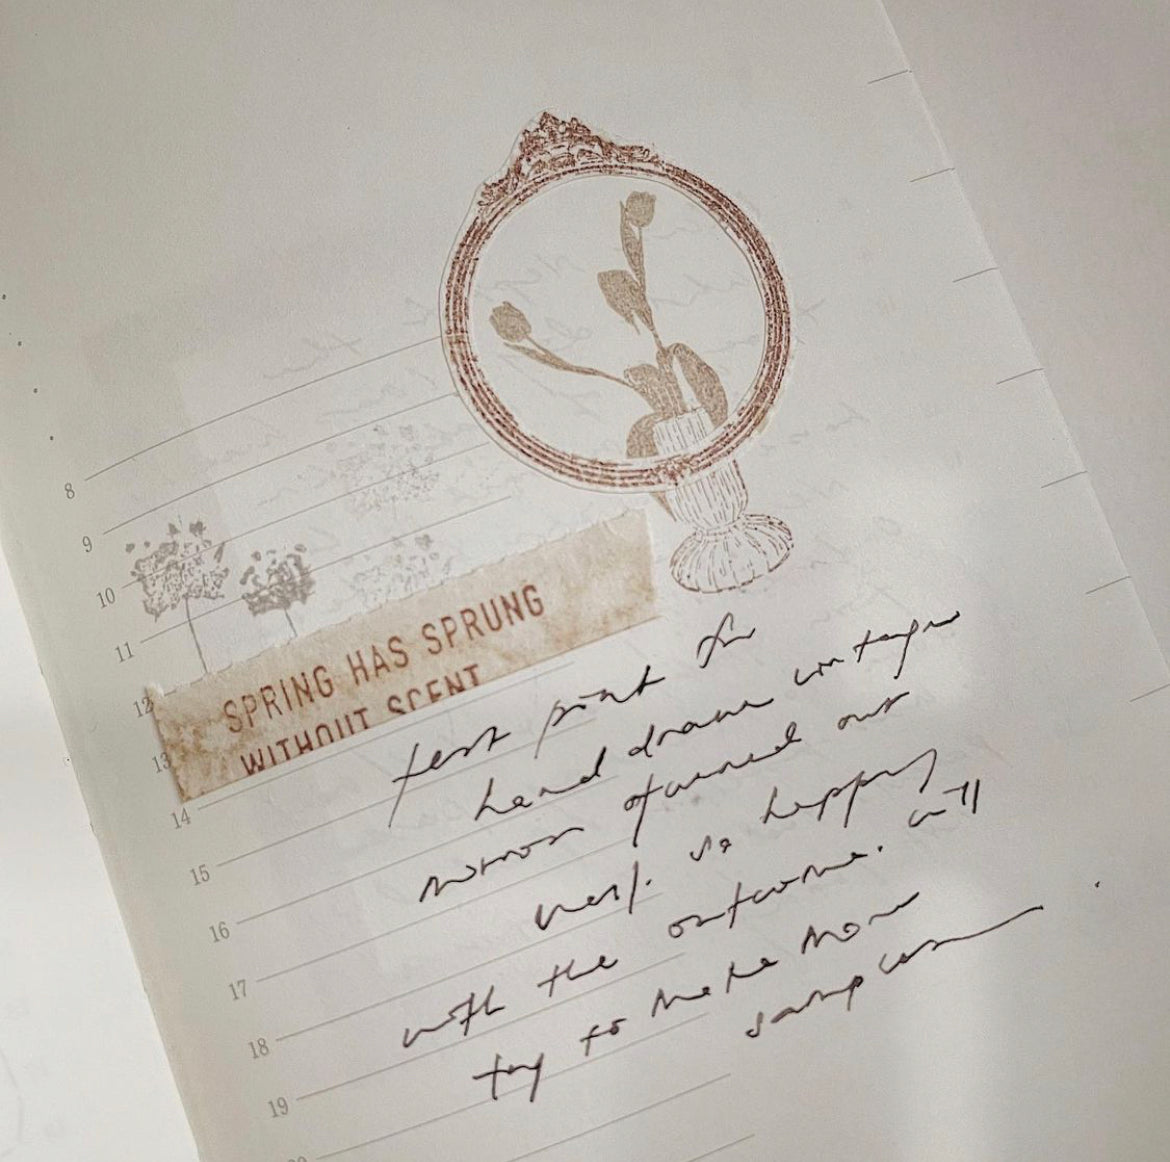 8
9
10
11
12
13
SPRING HAS SPRUNG
WITHOUT SCENT
14
15
16
17
18
19
test print for
hand drawn vintage
mirror turned out
well. so happy
with the outcome. will
try to make more
samples